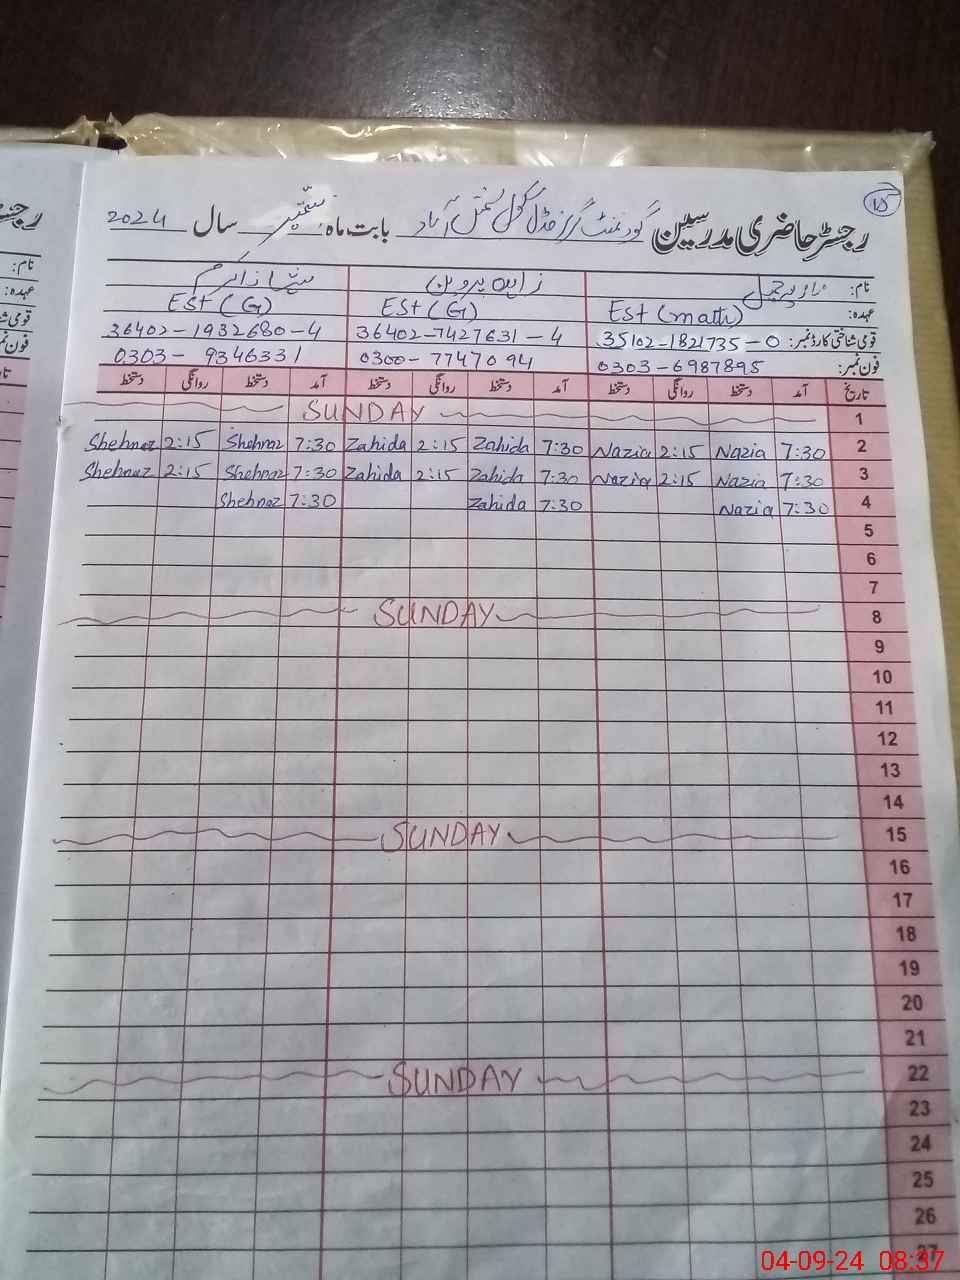 15
رجسٹر حاضری مدرسین گورنمنٹ گرلز مڈل سکول شمس آباد بابت ماہ ستمبر سال 2024
نام: زاہدہ پروین
عہدہ: Est (math) Est (G) Est (G)
قومی شناختی کارڈ نمبر: 35102-1821735-0 36402-7427631-4 36402-1932680-4
فون نمبر: 0303-6987895 0300-7747094 0303-9346331
تاریخ آمد دستخط روانگی دستخط آمد دستخط روانگی دستخط آمد دستخط روانگی دستخط
1 SUNDAY
2 7:30 Nazia 2:15 Nazia 7:30 Zahida 2:15 Zahida 7:30 Shehnaz 2:15 Shehnaz
3 7:30 Nazia 2:15 Nazia 7:30 Zahida 2:15 Zahida 7:30 Shehnaz 2:15 Shehnaz
4 7:30 Nazia 7:30 Zahida 7:30 Shehnaz
5
6
7
8 SUNDAY
9
10
11
12
13
14
15 SUNDAY
16
17
18
19
20
21
22 SUNDAY
23
24
25
26
27
04-09-24 08:37